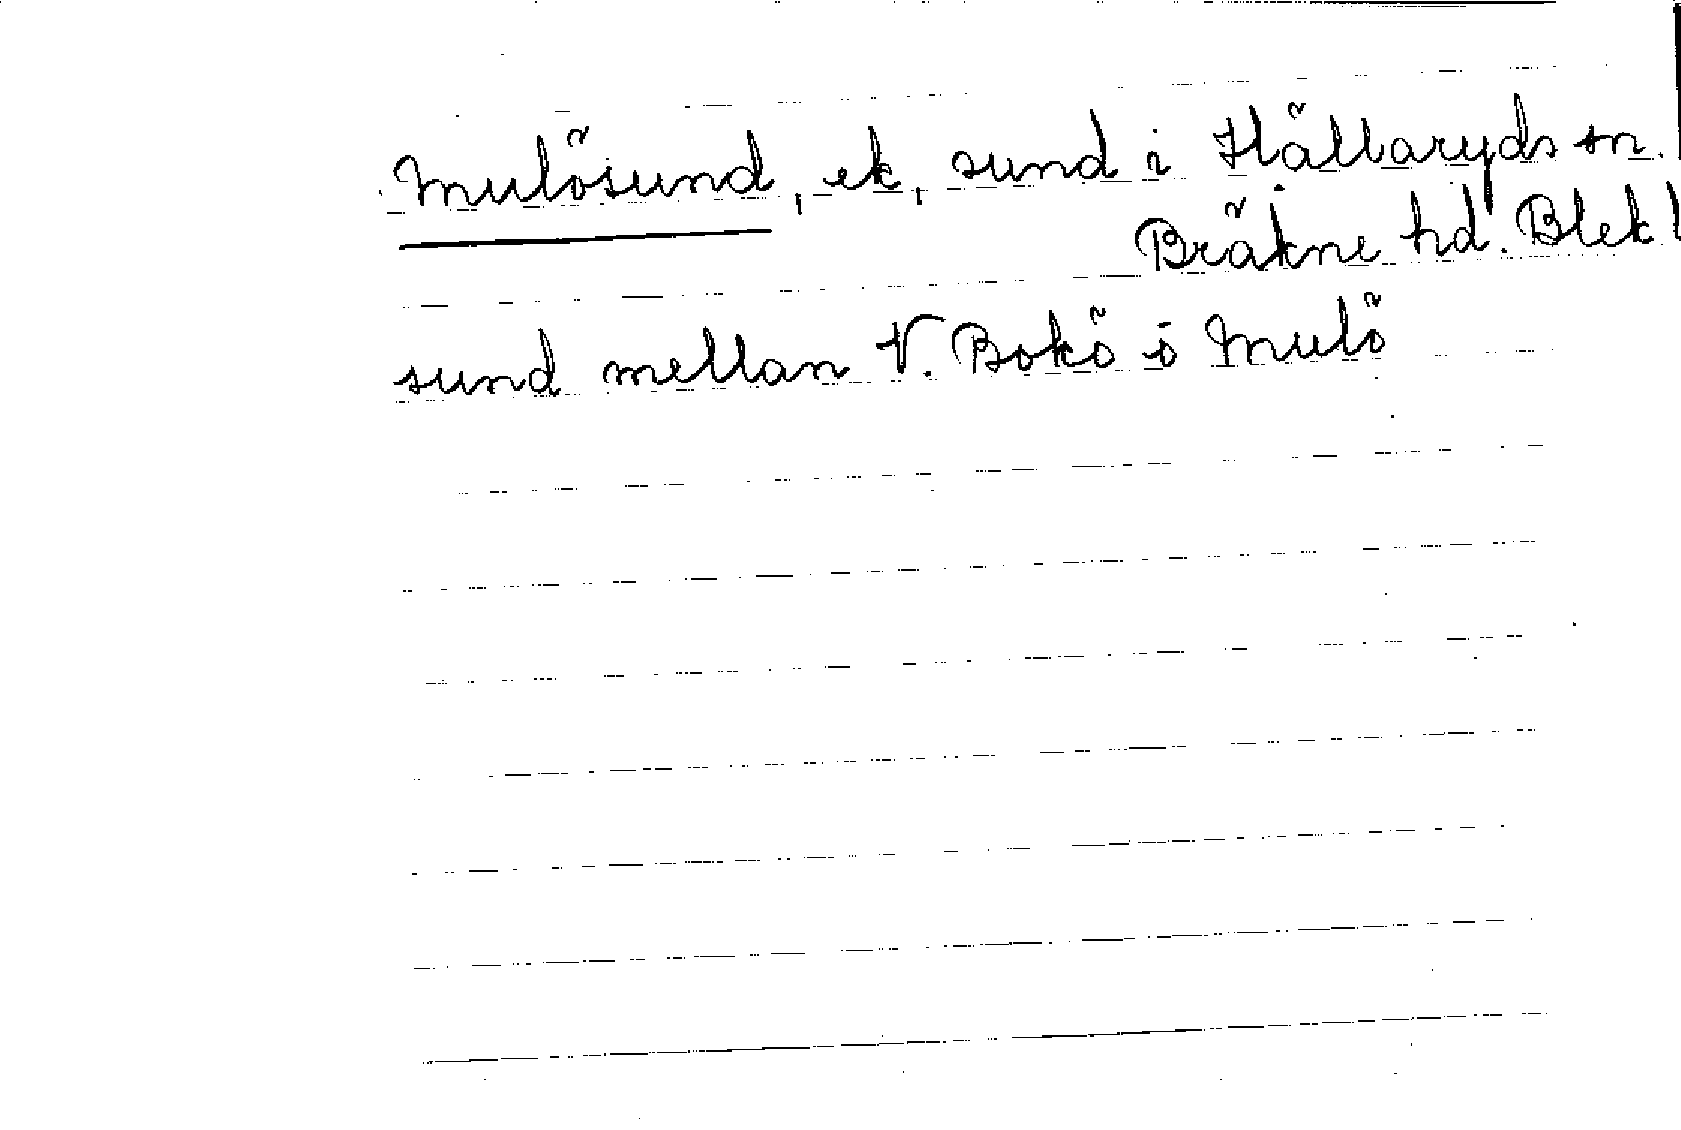 Mulösund, ek, sund i Hällaryds sn.
Bräkne hd. Blekl
sund mellan V. Bokö o Mulö